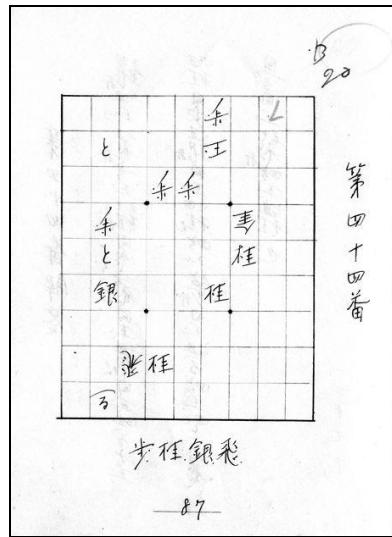 B
20
第四十四番
歩 7
と 玉
歩 歩
歩
と 桂
銀 桂
飛 桂
歩桂銀飛
87